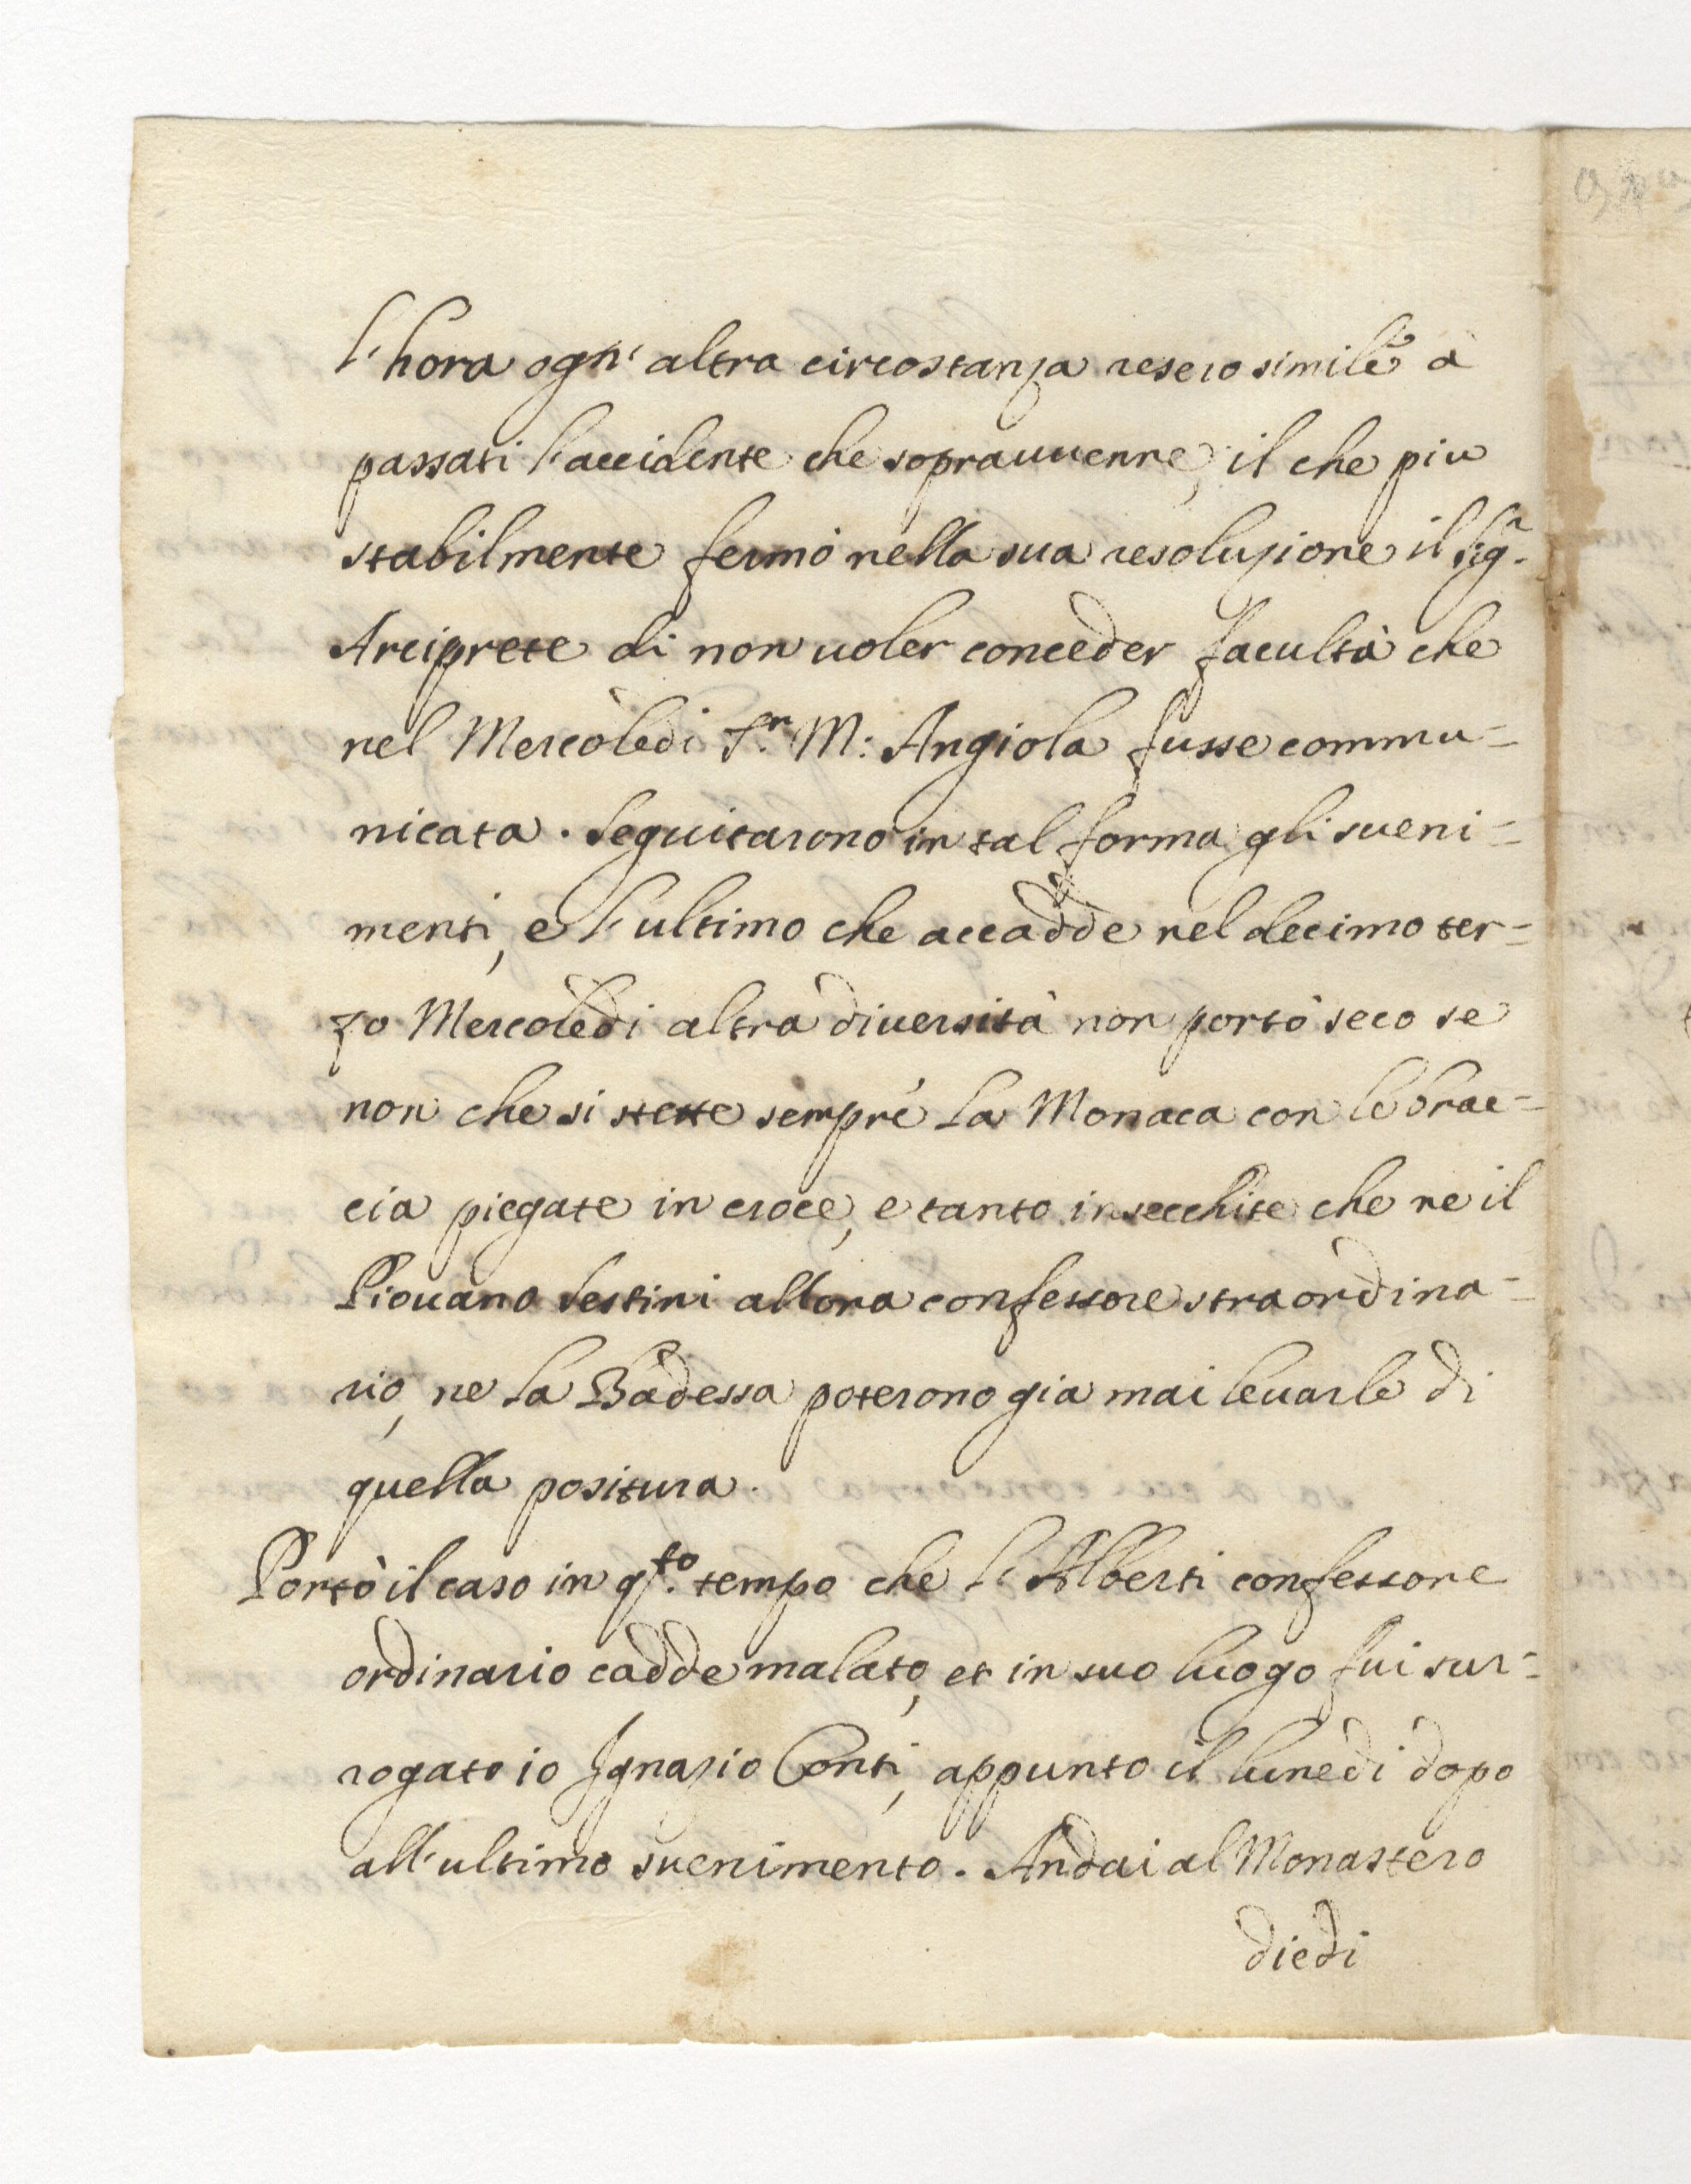 l'hora ogn' altra circostanza resero simile à
passati l'accidente che soprauuenne, il che piu
stabilmente fermò nella sua resoluzione il Sig.r
Arciprete di non uoler conceder facultà che
nel Mercoledi S.r M: Angiola fusse commu=
nicata. Seguitarono in tal forma gli sueni=
menti, e l'ultimo che accadde nel decimo ter=
zo Mercoledi altra diuersità non portò seco se
non che si stette sempre la Monaca con le brac=
cia piegate in croce, e tanto insecchite che ne il
Piouano Sestini allora confessore straordina=
rio, ne la Badessa poterono gia mai leuarle di
quella positura.
Portò il caso in q.sto tempo che l'Alberti confessore
ordinario cadde malato, et in suo luogo fui sur=
rogato io Ignazio Conti, appunto il lunedi dopo
all'ultimo suenimento. Andai al Monastero
diedi